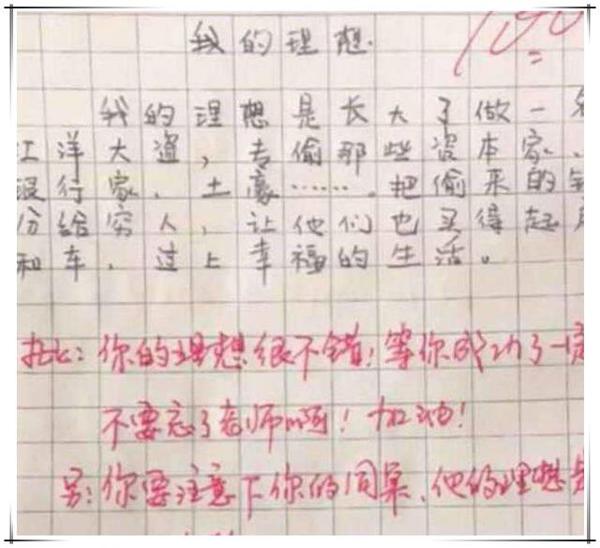 我的理想
100
我的理想是长大了做一名
江洋大盗，专偷那些资本家、
没行家、土豪……把偷来的钱
分给穷人，让他们也买得起房
和车，过上幸福的生活。
批：你的理想很不错！等你成功了一定
不要忘了老师啊！加油！
另：你要注意下你的同桌，他的理想是